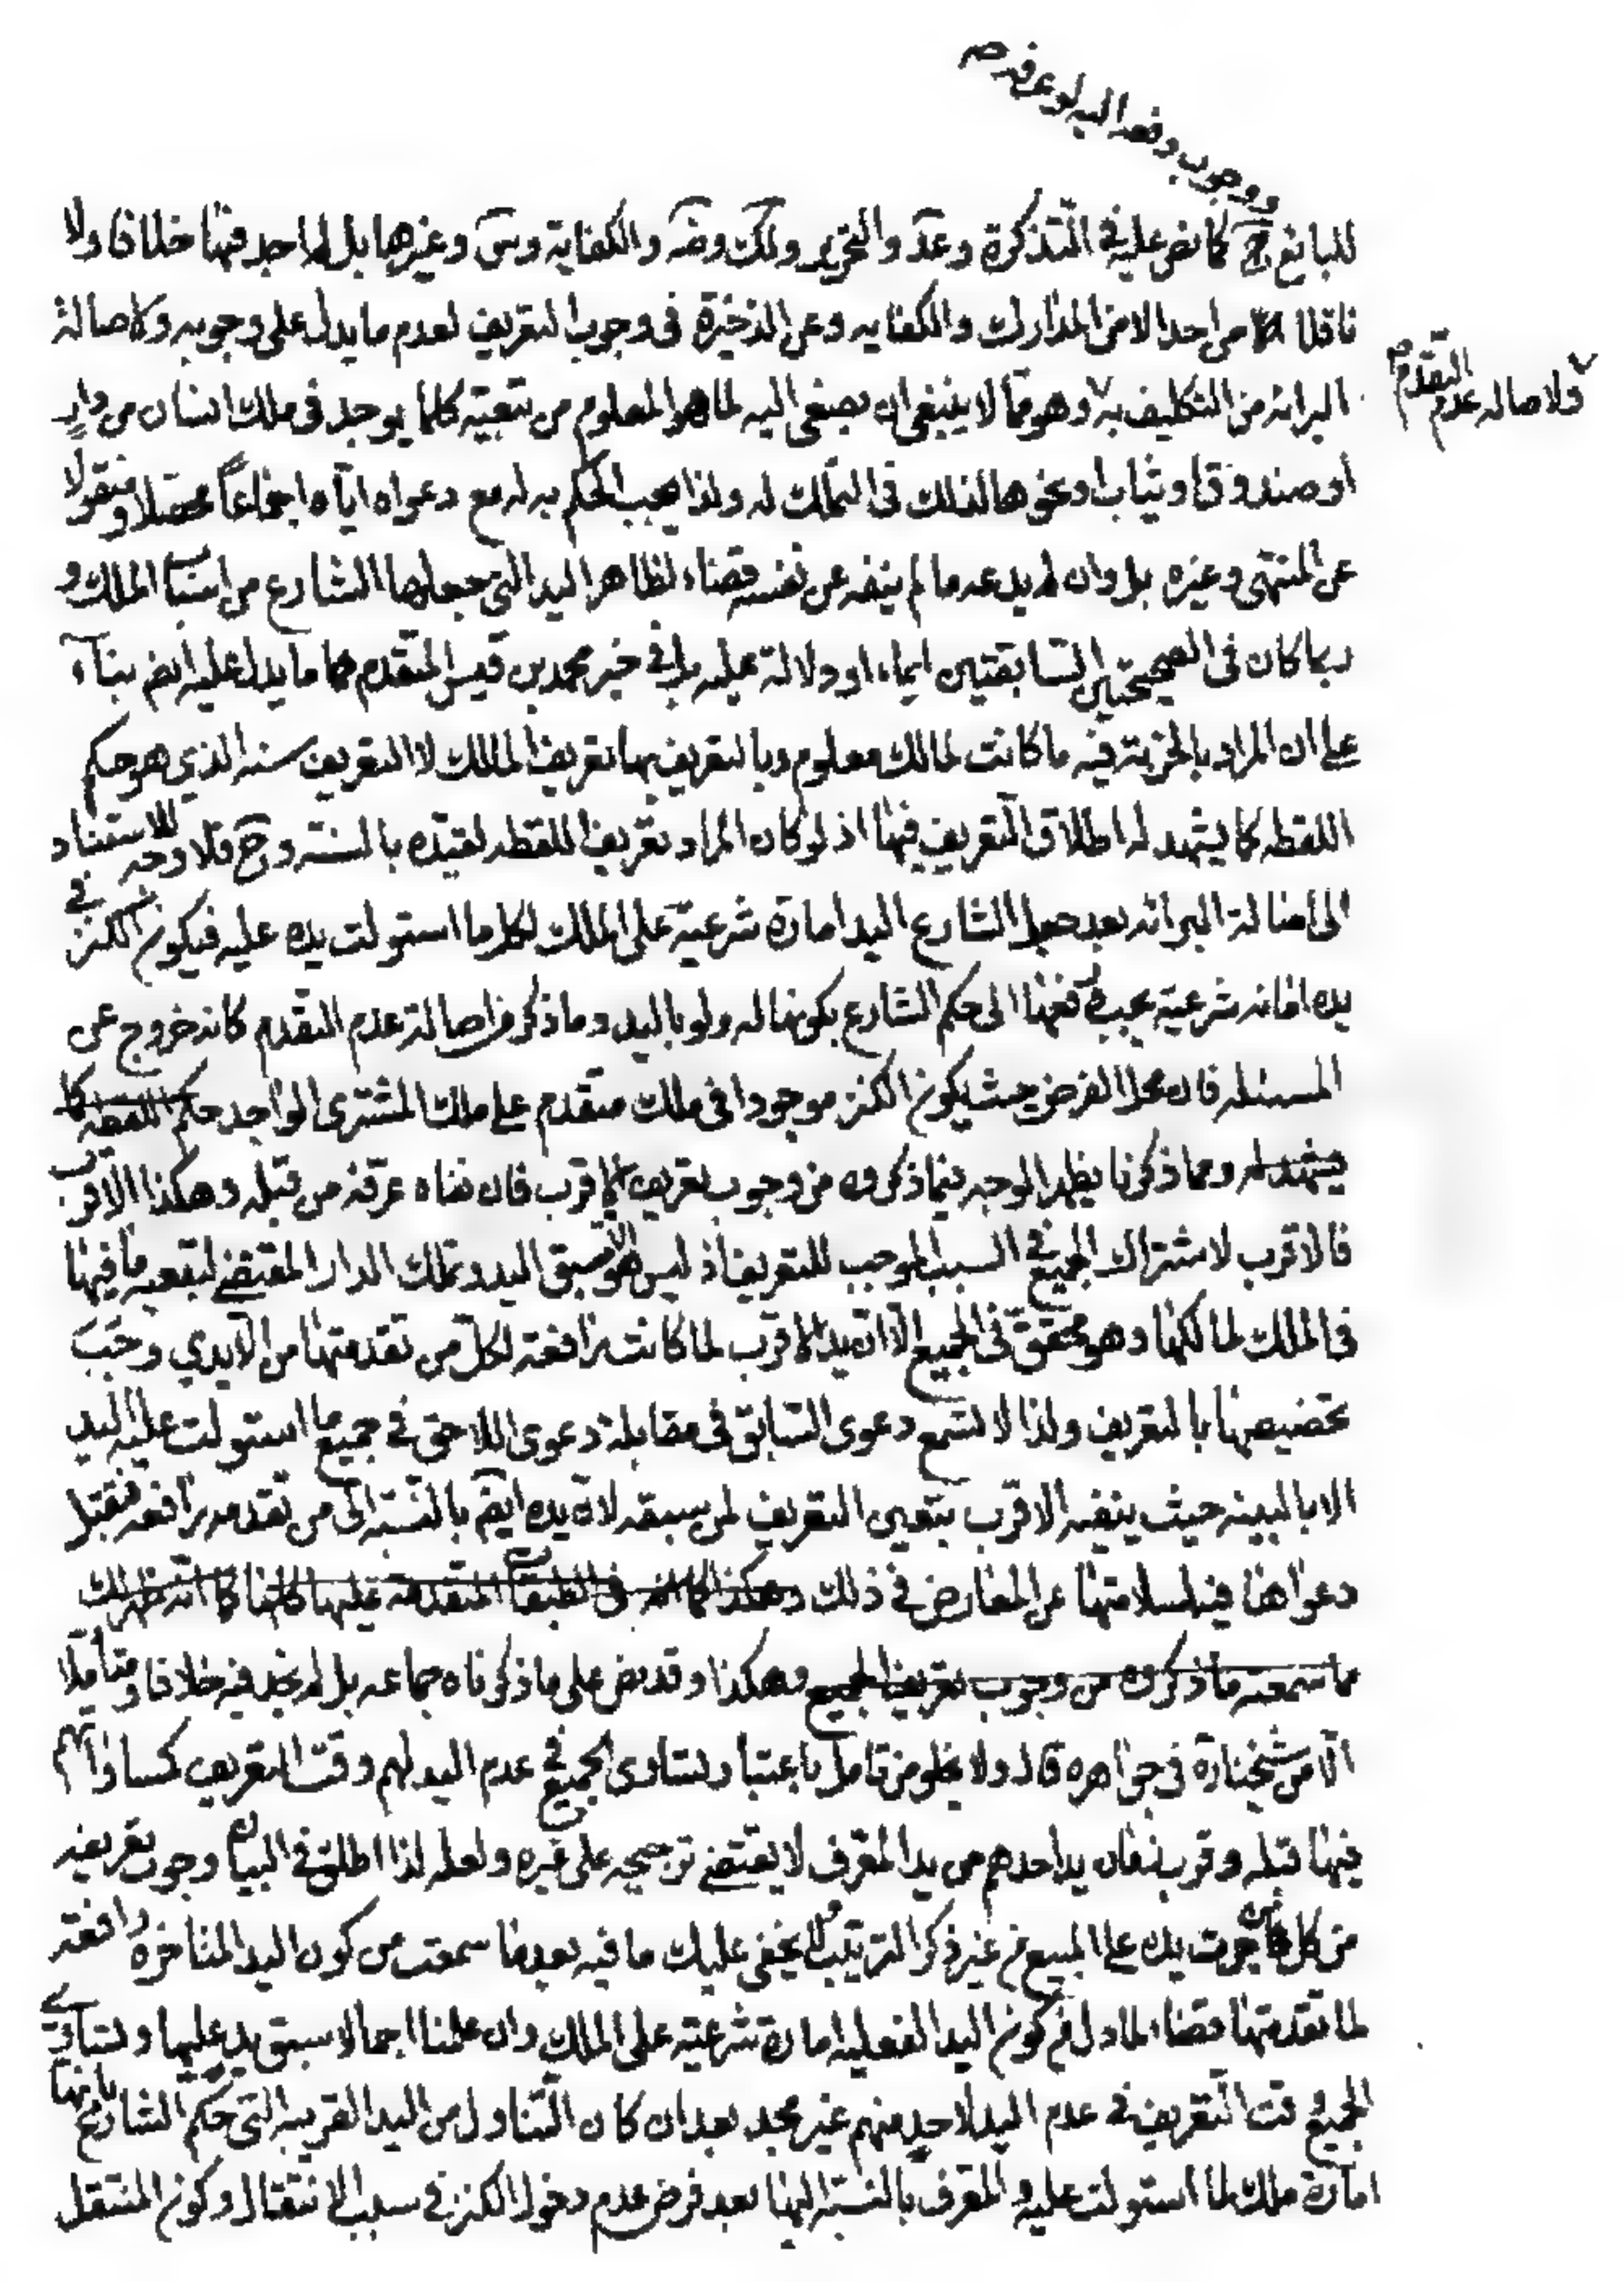 ووجوب دفعه اليه لو عرفه صح
للبايع ح كما نص عليه في التذكرة وعد والتحرير ولك وضه والكفاية وس وغيرها بل لم اجد فيها خلافا ولا
ناقلا من احد الا من المدارك والكفايه وعن الذخيرة فى وجوب التعريف لعدم ما يدل على وجوبه ولاصالة
البرائة من التكليف به وهو مما لا ينبغى ان يصغى اليه لما هو المعلوم من تبعية كلما يوجد فى ملك انسان من دار
ولاصاله عدم التقدم صح
او صندوق او ثياب او نحوها لذلك فى التملك له ولذا يجب الحكم به له مع دعواه اياه اجماعا محصلا ومنقولا
عن المنتهى وغيره بل وان لم يدعه ما لم ينفه عن نفسه قضاء لظاهر اليد التي جعلها الشارع من اسباب الملك و
ربما كان فى الصحيحتين السابقتين ايماء او دلالة عليه بل في خبر محمد بن قيس المتقدم ما يدل عليه ايض بناء
على ان المراد بالخربة فيه ما كانت لمالك معلوم وبالتعريف بها تعريف المالك لا التعريف سنه الذي هو حكم
اللقطه كما يشهد له اطلاق التعريف فيها اذ لو كان المراد تعريف اللقطه لقيده بالسنة وح فلا وجه للاستناد
الى اصالة البرائه بعد جعل الشارع اليد امارة شرعية على الملك لكل ما استولت يده عليه فيكون الكنز في
يده امانه شرعية يجب دفعها الى حكم الشارع بكونها له ولو باليد وما ذكر من اصالة عدم التقدم كانه خروج عن
المسئله فان محل الفرض حيث يكون الكنز موجودا فى ملك متقدم على ملك المشترى الواجد حكم اللقطه كما
يشهد له ومما ذكرنا يظهر الوجه فيما ذكروه من وجوب تعريف الاقرب فان نفاه عرفه من قبله وهكذا الاقرب
فالاقرب لاشتراك الجميع في السبب الموجب للتعريف اذ ليس هو الا سبق اليد وتملك الدار المقتضي لتبعيه ما فيها
فى الملك لمالكها وهو محقق فى الجميع الا ان يد الاقرب لما كانت رافعة لكل من تقدمتها من الايدي وجب
تخصيصها بالتعريف ولذا لا تسمع دعوى السابق فى مقابلة دعوى اللاحق في جميع ما استولت عليه اليد
الا بالبينه حيث ينفيه الاقرب يتعين التعريف لمن سبقه لان يده ايض بالنسبة الى من تقدمه رافعه فتقبل
دعواها فيه لسلامتها عن المعارض في ذلك وهكذا في الطبقات المتقدمة عليها كلها كما انه ظهر لك
مما سمعته ما ذكروه من وجوب تعريف الجميع وهكذا وقد نص على ما ذكرناه جماعه بل لم نجد فيه خلافا ومتأملا
الا من شيخنا ره فى جواهره قال ولا يخلو من تامل باعتبار تساوى الجميع في عدم اليد لهم وقت التعريف كمساواتهم
فيها قبله وقرب زمان يد احدهم من يد المعرف لا يقتضي ترجيحه على غيره ولعله لذا اطلق في البيان وجوب تعريفه
من كل من جرت يده على المبيع من غير ذكر الترتيب ولا يخفى عليك ما فيه بعد ما سمعت من كون اليد المتاخرة رافعة
لما تقدمتها قضاء لما دل من كون اليد الفعليه امارة شرعية على الملك وان علمنا اجمالا سبق يد عليها وتساوي
الجميع وقت التعريف في عدم اليد لاحد منهم غير مجد بعد ان كان التناول من اليد القريبه التي حكم الشارع بانها
امارة ملك لما استولت عليه والمعرف بالنسبة اليها بعد فرض عدم دخول الكنز في سبب الانتقال وكون المنتقل